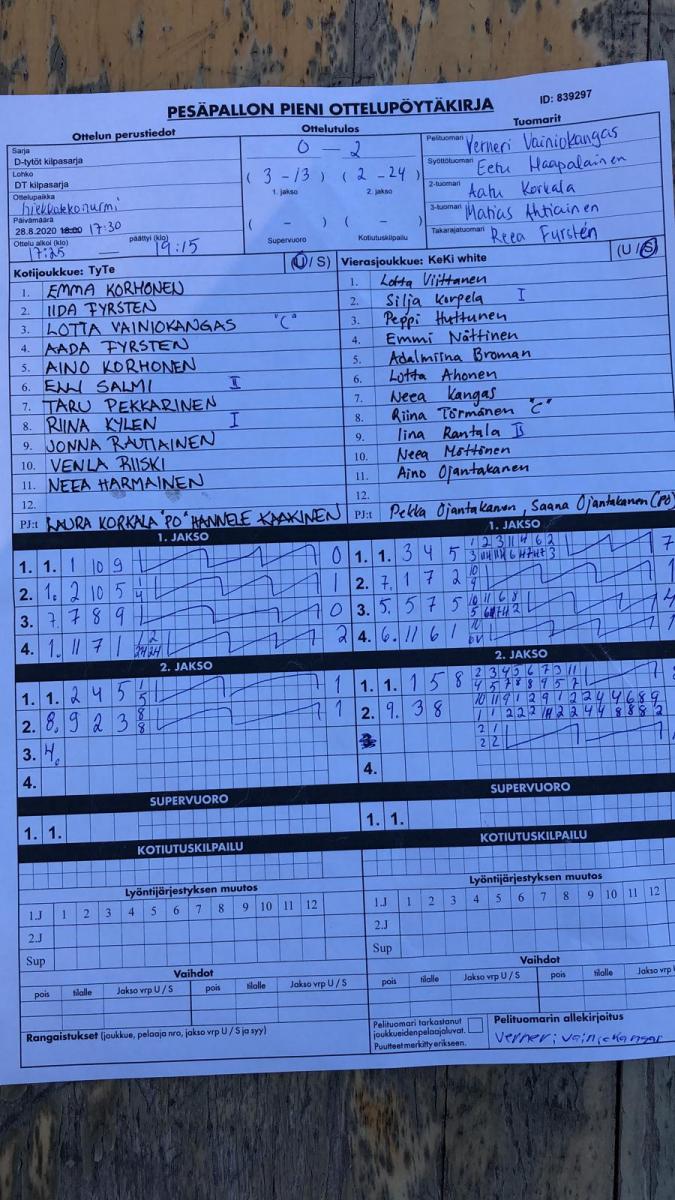 PESÄPALLON PIENI OTTELUPÖYTÄKIRJA
ID: 839297
Ottelun perustiedot
Sarja
D-tytöt kilpasarja
Lohko
DT kilpasarja
Ottelupaikka
hiekkatekonurmi
Päivämäärä
28.8.2020 18:00 17:30
Ottelu alkoi (klo) päättyi (klo)
17:25 — 19:15
Ottelutulos
0 — 2
( 3 - 13 ) ( 2 - 24 )
1. jakso 2. jakso
( - ) ( - )
Supervuoro Kotiutuskilpailu
Tuomarit
Pelituomari Verneri Vainiokangas
Syöttötuomari Eetu Haapalainen
2-tuomari Aatu Korkala
3-tuomari Matias Ahtiainen
Takarajatuomari Reea Fyrstén
Kotijoukkue: TyTe (U / S)
1. EMMA KORHONEN
2. IIDA FYRSTEN
3. LOTTA VAINIOKANGAS "C"
4. AADA FYRSTEN
5. AINO KORHONEN
6. ENNI SALMI II
7. TARU PEKKARINEN
8. RIINA KYLEN I
9. JONNA RAUTIAINEN
10. VENLA RIISKI
11. NEEA HARMAINEN
12.
PJ:t LAURA KORKALA "PO" HANNELE KAAKINEN
Vierasjoukkue: KeKi white (U / S)
1. Lotta Viittanen
2. Silja Korpela I
3. Peppi Huttunen
4. Emmi Nättinen
5. Adalmiina Broman
6. Lotta Ahonen
7. Neea Kangas
8. Riina Törmänen "C"
9. Iina Rantala II
10. Neea Möttönen
11. Aino Ojantakanen
12.
PJ:t Pekka Ojantakanen, Saana Ojantakanen (PO)
1. JAKSO
1. 1. 1 10 9 0
2. 1. 2 10 5 1
3. 7. 7 8 9 0
4. 1. 11 7 1 2
2. JAKSO
1. 1. 2 4 5 1
2. 8. 9 2 3 1
3. 4.
4.
SUPERVUORO
1. 1.
KOTIUTUSKILPAILU
Lyöntijärjestyksen muutos
1.J 1 2 3 4 5 6 7 8 9 10 11 12
2.J
Sup
Vaihdot
pois tilalle Jakso vrp U / S pois tilalle Jakso vrp U / S
Rangaistukset (joukkue, pelaaja nro, jakso vrp U / S ja syy)
1. JAKSO
1. 1. 3 4 5 7
2. 7. 1 7 2
3. 5. 5 7 5 4
4. 6. 11 6 1
2. JAKSO
1. 1. 1 5 8
2. 9. 3 8
4.
SUPERVUORO
1. 1.
KOTIUTUSKILPAILU
Lyöntijärjestyksen muutos
1.J 1 2 3 4 5 6 7 8 9 10 11 12
2.J
Sup
Vaihdot
pois tilalle Jakso vrp U / S pois tilalle
Pelituomari tarkastanut
joukkueidenpelaajaluvat.
Puutteet merkitty erikseen.
Pelituomarin allekirjoitus
Verneri vainiokangas